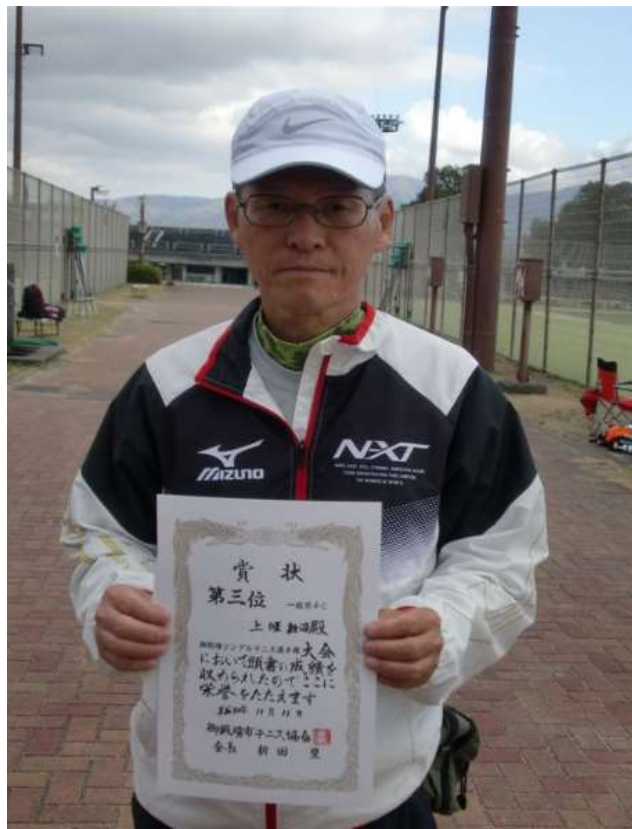 MIZUNO
NXT
賞状
第三位 一般男子C
上 殿
御殿場シングルテニス選手権大会
において頭書の成績を
収められたのでここに
栄誉をたたえます
11月11日
御殿場市テニス協会
会長 新田 豊